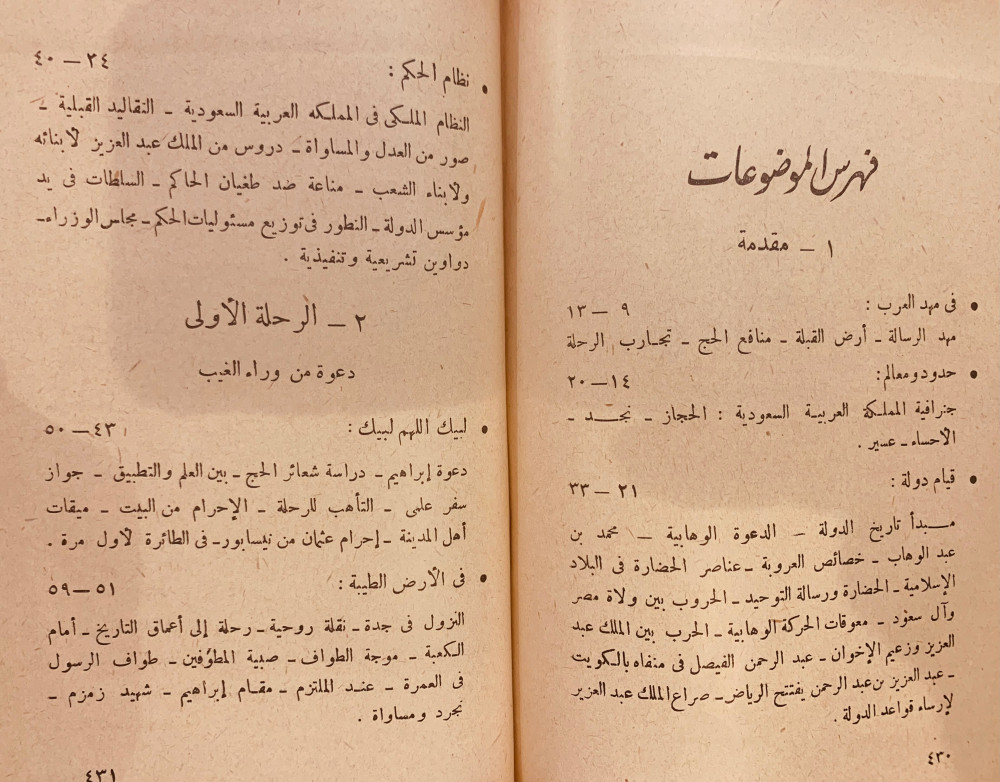 فهرس الموضوعات
١ – مقدمة
• فى مهد العرب : ٩ – ١٣
مهد الرسالة – أرض القبلة – منافع الحج – تجارب الرحلة
• حدود ومعالم : ١٤ – ٢٠
جغرافية المملكة العربية السعودية : الحجاز – نجد –
الأحساء – عسير .
• قيام دولة : ٢١ – ٣٣
مبدأ تاريخ الدولة – الدعوة الوهابية – محمد بن
عبد الوهاب – خصائص العروبة – عناصر الحضارة فى البلاد
الإسلامية – الحضارة ورسالة التوحيد – الحروب بين ولاة مصر
وآل سعود – معوقات الحركة الوهابية – الحرب بين الملك عبد
العزيز وزعيم الإخوان – عبد الرحمن الفيصل فى منفاه بالكويت
– عبد العزيز بن عبد الرحمن يفتتح الرياض – صراع الملك عبد العزيز
لإرساء قواعد الدولة .
٤٣٠
• نظام الحكم : ٣٤ – ٤٠
النظام الملكى فى المملكه العربية السعودية – التقاليد القبلية –
صور من العدل والمساواة – دروس من الملك عبد العزيز لأبنائه
ولأبناء الشعب – مناعة ضد طغيان الحاكم – السلطات فى يد
مؤسس الدولة – التطور فى توزيع مسئوليات الحكم – مجلس الوزراء –
دواوين تشريعية وتنفيذية .
٢ – الرحلة الأولى
دعوة من وراء الغيب
• لبيك اللهم لبيك : ٤٣ – ٥٠
دعوة إبراهيم – دراسة شعائر الحج – بين العلم والتطبيق – جواز
سفر علمى – التأهب للرحلة – الإحرام من البيت – ميقات
أهل المدينة – إحرام عثمان من نيسابور – فى الطائرة لأول مرة .
• فى الأرض الطيبة : ٥١ – ٥٩
النزول فى جدة – نقلة روحية – رحلة إلى أعماق التاريخ – أمام
الكعبة – موجة الطواف – صبية المطوفين – طواف الرسول
فى العمرة – عند الملتزم – مقام إبراهيم – شهيد زمزم –
تجرد ومساواة .
٤٣١